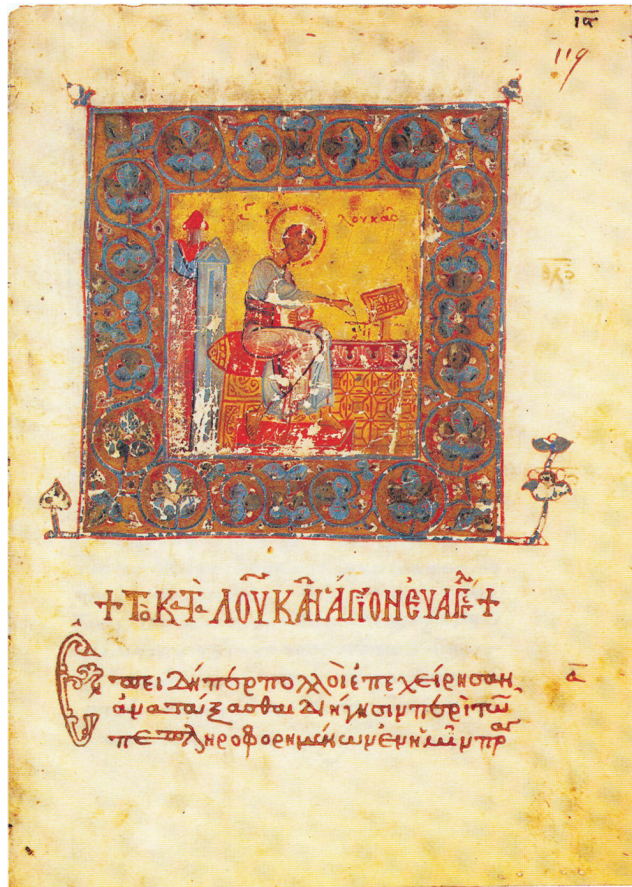 ια
119
ἅ λουκᾶς
+ Τὸ ΚαΤὰ ΛΟΥΚΑΝ ἍΓΙΟΝ ΕΥΑΓΓ +
Επειδήπερ πολλοὶ ἐπεχείρησαν
ἀνατάξασθαι διήγησιν περὶ τῶ
πεπληροφορημένων ἐν ἡμῖν πρα
α